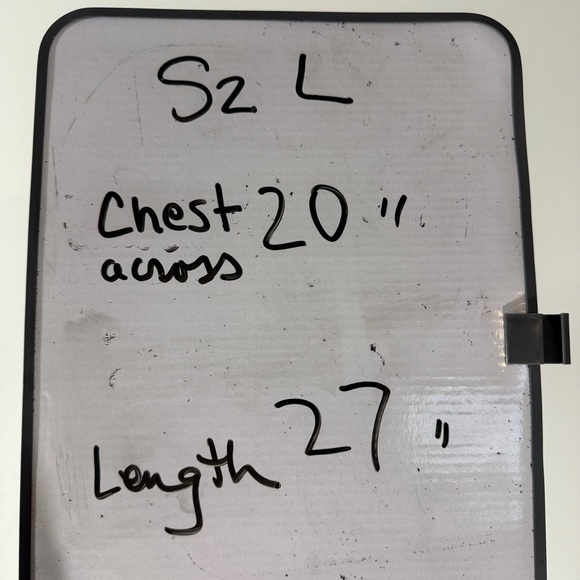 Sz L
Chest 20"
across
Length 27"